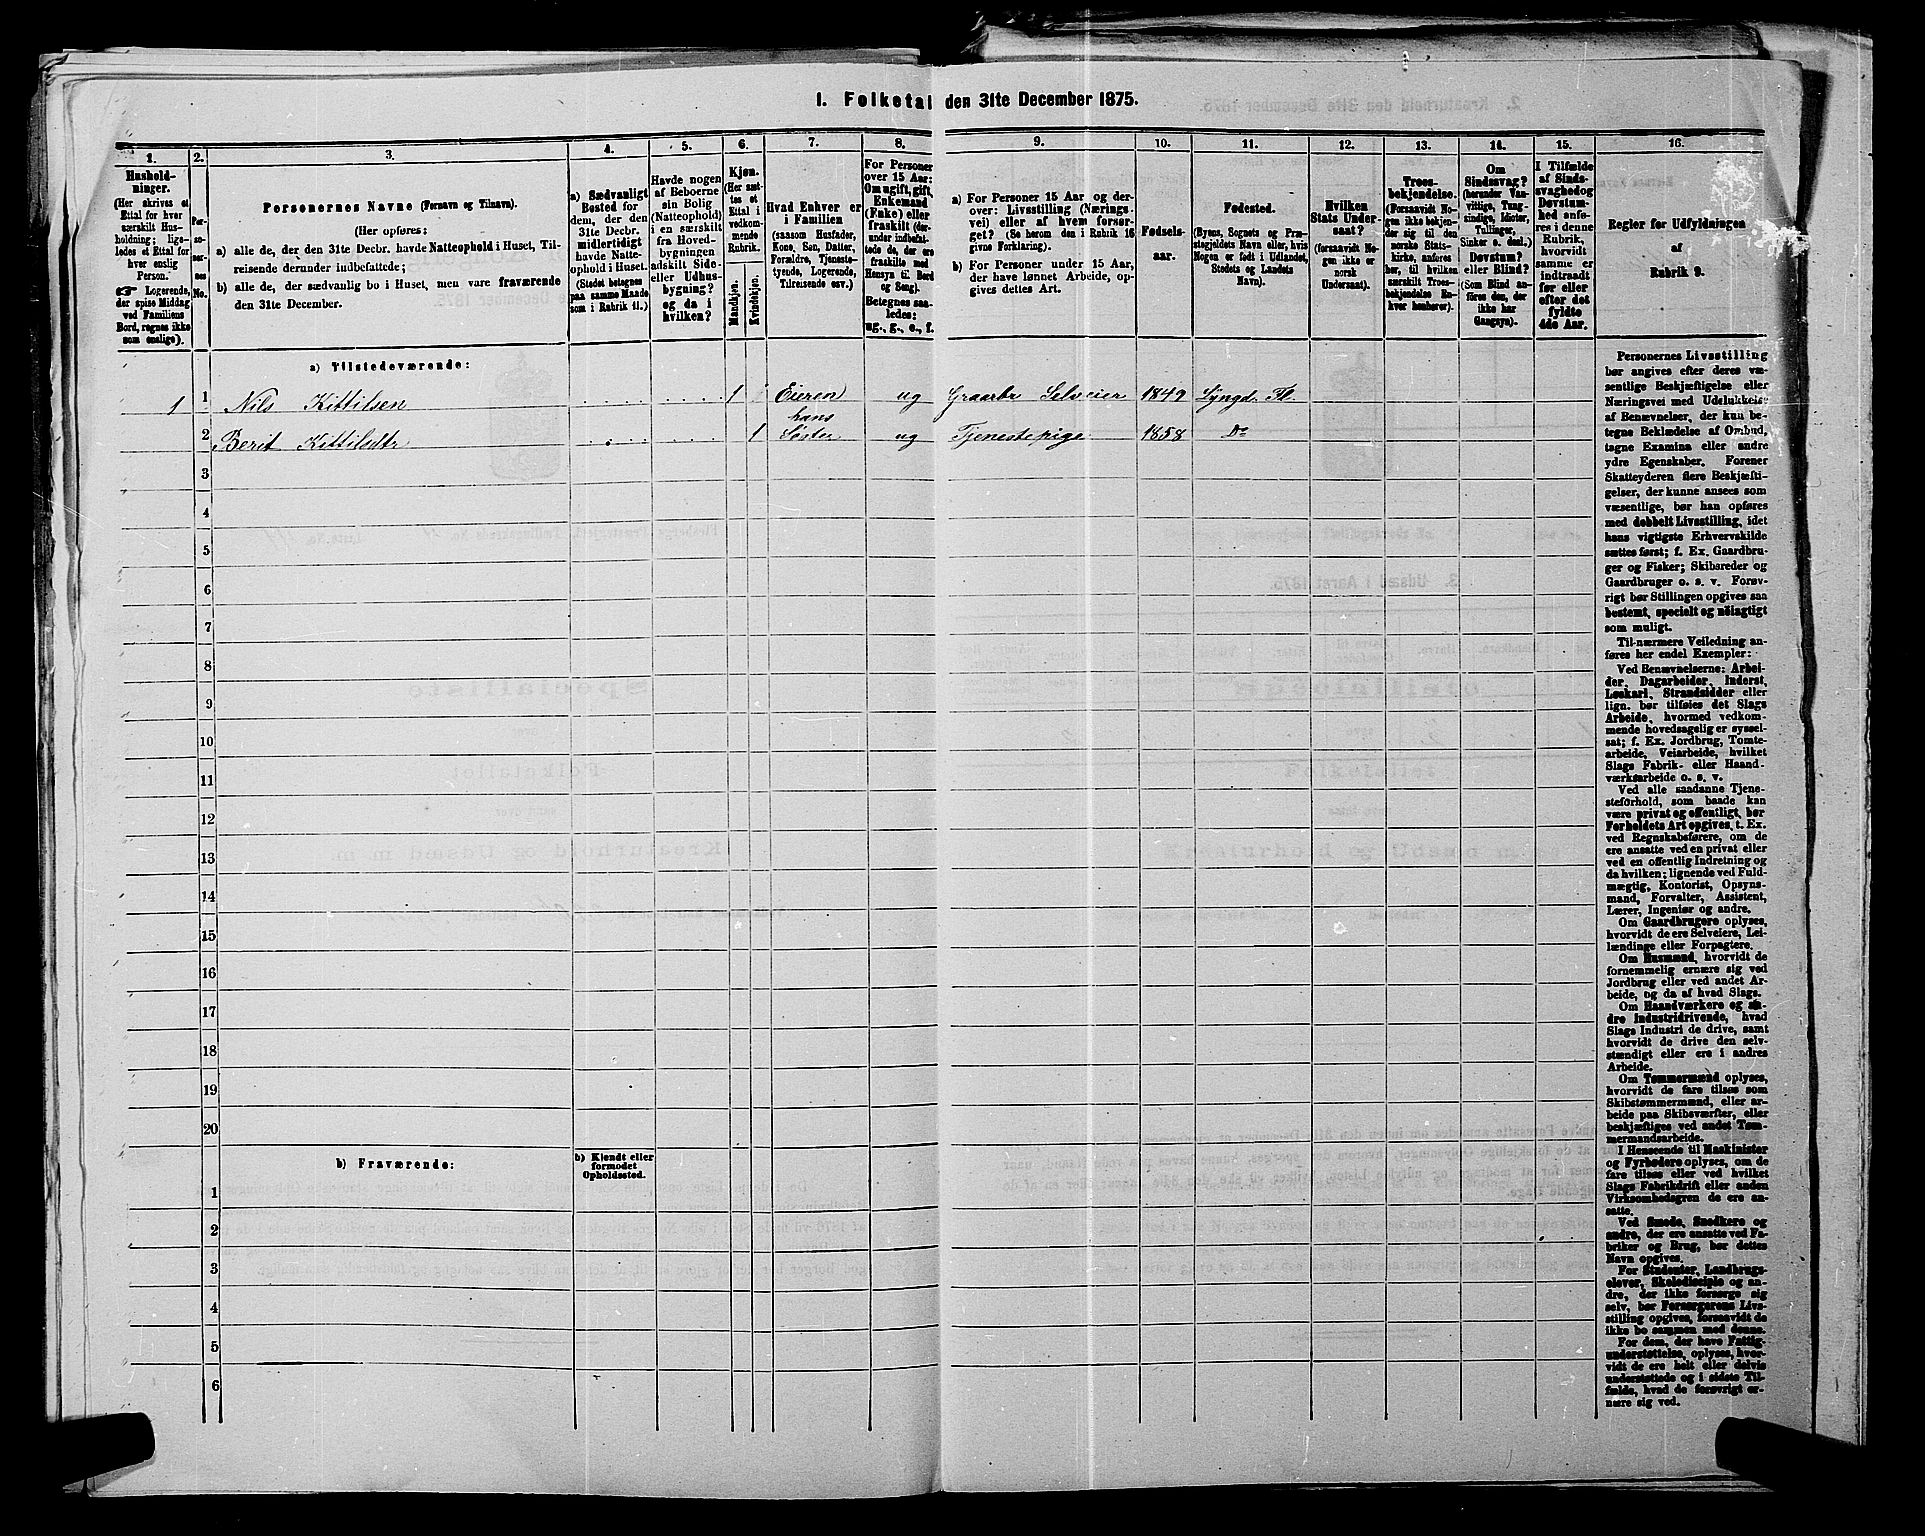 1. Folketal den 31te December 1875.
1.
2.
3.
4.
5.
6.
7.
8.
9.
10.
11.
12.
13.
14.
15.
16.
Hushold-
ninger.
(Her skrives et
Ettal for hver
særskilt Hus-
holdning; lige-
ledes et Ettal for
hver enslig
Person.
☞ Logerende,
der spise Middag
ved Familiens
Bord, regnes ikke
som enslige).
Per-
so-
ner-
nes
No.
Personernes Navne (Fornavn og Tilnavn).
(Her opføres:
a) alle de, der den 31te Decbr. havde Natteophold i Huset, Til-
reisende derunder indbefattede;
b) alle de, der sædvanlig bo i Huset, men vare fraværende
den 31te December.
a) Sædvanligt
Bosted for
dem, der den
31te Decbr.
midlertidigt
havde Natte-
ophold i Huset.
(Stedet betegnes
paa samme Maade
som i Rubrik 11.)
Havde nogen
af Beboerne
sin Bolig
(Natteophold)
i en særskilt
fra Hoved-
bygningen
adskilt Side-
eller Udhus-
bygning?
og da i
hvilken?
Kjøn.
(Her sæt-
tes et
Ettal i
vedkom-
mende
Rubrik.
Mandkjøn.
Kvindekjøn.
Hvad Enhver er
i Familien
(saasom Husfader,
Kone, Søn, Datter,
Forældre, Tjeneste-
tyende, Logerende,
Tilreisende osv.)
For Personer
over 15 Aar:
Om ugift, gift,
Enkemand
(Enke) eller
fraskilt (der-
under indbefat-
tede de, der ere
fraskilte med
Hensyn til Bord
og Seng).
Betegnes saa-
ledes:
ug., g., e., f.
a) For Personer 15 Aar og der-
over: Livsstilling (Nærings-
vei) eller af hvem forsør-
get? (Se herom den i Rubrik 16
givne Forklaring).
b) For Personer under 15 Aar,
der have lønnet Arbeide, op-
gives dettes Art.
Fødsels-
aar.
Fødested.
(Byens, Sognets og Præ-
stegjeldets Navn eller, hvis
Nogen er født i Udlandet,
Stedets og Landets
Navn).
Hvilken
Stats Under-
saat?
(forsaavidt No-
gen ikke er
norsk
Undersaat).
Troes-
bekjendelse.
(Forsaavidt No-
gen ikke bekjen-
der sig til den
norske Stats-
kirke, anføres
her, til hvilken
særskilt Troes-
bekjendelse En-
hver henhører).
Om
Sindssvag?
(herunder Van-
vittige, Tung-
sindige, Idioter,
Tullinger,
Sinker o. desl.)
Døvstum?
eller Blind?
(Som Blind an-
føres den, der
ikke har
Gangsyn).
I Tilfælde
af Sinds-
svaghed og
Døvstum-
hed anfø-
res i denne
Rubrik,
hvorvidt
samme er
indtraadt
før eller
efter det
fyldte
4de Aar.
Regler for Udfyldningen
af
Rubrik 9.
a) Tilstedeværende:
1 1 Nils Kittilsen 1 Eieren ug Gaardbr Selveier 1849 Lyngd. Fl.
2 Berit Kittilsdtr 1 hans
Søster ug Tjenestepige 1858 Do
3
4
5
6
7
8
9
10
11
12
13
14
15
16
17
18
19
20
b) Fraværende:
b) Kjendt eller
formodet
Opholdssted.
1
2
3
4
5
6
Personernes Livsstilling
bør angives efter deres væ-
sentlige Beskjæftigelse eller
Næringsvei med Udelukkelse
af Benævnelser, der kun be-
tegne Beklædelse af Ombud,
tagne Examina eller andre
ydre Egenskaber. Forener
Skatteyderen flere Beskjæfti-
gelser, der kunne ansees som
væsentlige, bør han opføres
med dobbelt Livsstilling, idet
hans vigtigste Erhvervskilde
sættes først; f. Ex. Gaardbru-
ger og Fisker; Skibsreder og
Gaardbruger o. s. v. Forøv-
rigt bør Stillingen opgives saa
bestemt, specielt og nøiagtigt
som muligt.
Til nærmere Veiledning an-
føres her endel Exempler:
Ved Benævnelserne: Arbei-
der, Dagarbeider, Inderst,
Løskarl, Strandsidder eller
lign. bør tilføies det Slags
Arbeide, hvormed vedkom-
mende hovedsagelig er syssel-
sat; f. Ex. Jordbrug, Tomte-
arbeide, Veiarbeide, hvilket
Slags Fabrik- eller Haand-
værksarbeide o. s. v.
Ved alle saadanne Tjene-
steforhold, som baade kan
være privat og offentligt, bør
Forholdets Art opgives, t. Ex.
ved Regnskabsførere, om de
ere ansatte ved en privat eller
ved en offentlig Indretning og
da hvilken; lignende ved Fuld-
mægtig, Kontorist, Opsyns-
mand, Forvalter, Assistent,
Lærer, Ingeniør og andre.
Om Gaardbrugere oplyses,
hvorvidt de ere Selveiere, Lei-
lændinge eller Forpagtere.
Om Husmænd, hvorvidt de
fornemmelig ernære sig ved
Jordbrug eller ved andet Ar-
beide, og da af hvad Slags.
Om Haandværkere og an-
dre Industridrivende, hvad
Slags Industri de drive, samt
hvorvidt de drive den selv-
stændigt eller ere i andres
Arbeide.
Om Tømmermænd oplyses,
hvorvidt de fare tilsøs som
Skibstømmermænd, eller ar-
beide paa Skibsværfter, eller
beskjæftiges ved andet Tøm-
mermandsarbeide.
I Henseende til Maskinister
og Fyrbødere oplyses, om de
fare tilsøs eller ved hvilket
Slags Fabrikdrift eller anden
Virksomhed de ere an-
satte.
Ved Smede, Snedkere og
andre, der ere ansatte ved Fa-
briker og Brug, bør dettes
Navn opgives.
For Studenter, Landbrugs-
elever, Skoledisciple og an-
dre, der ikke forsørge sig
selv, bør Forsørgerens Livs-
stilling opgives, forsaavidt de
ikke bo sammen med denne.
For dem, der have Fattig-
understøttelse, oplyses, hvor-
vidt de ere helt eller delvis
understøttede og i sidste Til-
fælde, hvad de forøvrigt er-
nære sig ved.